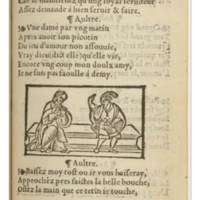 Car le maintien, qu'ung loyal seruiteur
Assez demande à bien seruir & faire.
¶ Aultre.
Vne dame par vng matin
Apres auoir son picotin
Du ieu d'amour non assouuie,
Vray dieu, dict elle, qu'elle vie,
Encore vng coup mon doulx amy,
Ie ne suis pas saoulle à demy.
¶ Aultre.
Baisez moy tost ou ie vous baiseray,
Approchez pres faictes la belle bouche,
Ostez la main que ce tetin ie touche,